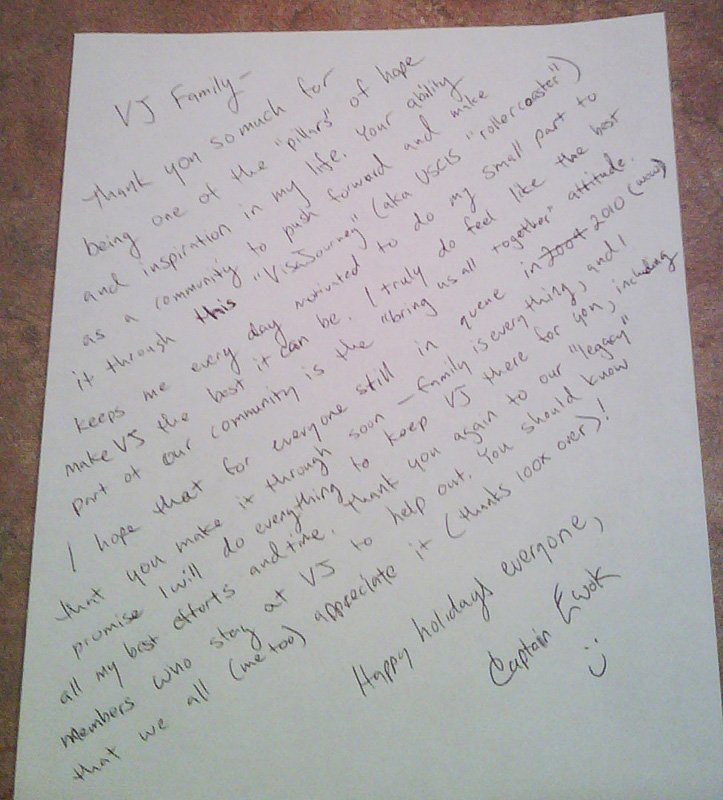 VJ Family-
Thank you so much for
being one of the "pillars" of hope
and inspiration in my life. Your ability
as a community to push forward and make
it through this "VisaJourney" (aka USCIS "rollercoaster")
keeps me every day motivated to do my small part to
make VJ the best it can be. I truly do feel like the best
part of our community is the "bring us all together" attitude.
I hope that for everyone still in queue in 2009 2010 (wow)
that you make it through soon - family is everything, and I
promise I will do everything to keep VJ there for you, including
all my best efforts and time. Thank you again to our "legacy"
members who stay at VJ to help out. You should know
that we all (me too) appreciate it (thanks 100x over)!
Happy holidays everyone,
Captain Ewok
:)